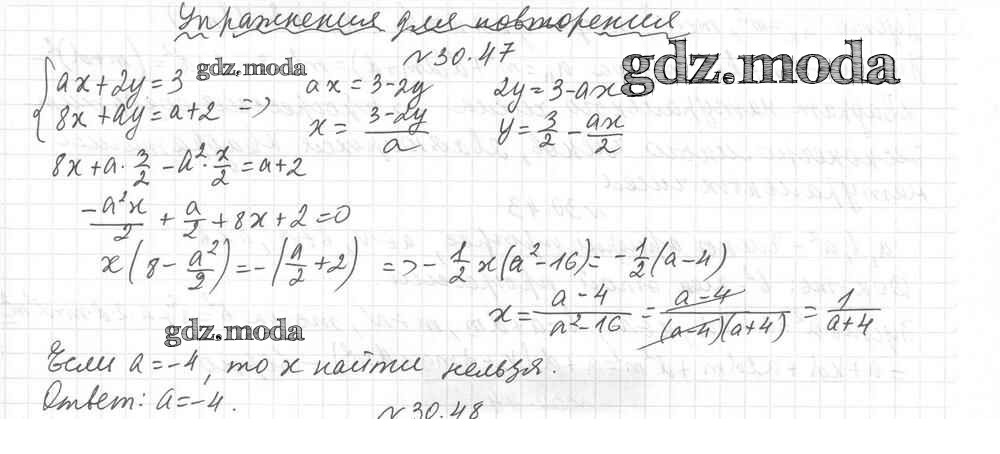 Упражнения для повторения
№30.47
gdz.moda
{ax+2y=3
8x+ay=a+2 =>
gdz.moda
ax=3-2y
x=(3-2y)/a
2y=3-ax
y=3/2-ax/2
8x+a·3/2-a²·x/2=a+2
-a²x/2+a/2+8x+2=0
x(8-a²/2)=-(a/2+2) => -1/2x(a²-16)=-1/2(a-4)
x=(a-4)/(a²-16)=(a-4)/((a-4)(a+4))=1/(a+4)
gdz.moda
Если a=-4, то x найти нельзя.
Ответ: a=-4.
№30.48